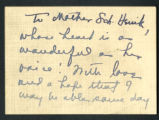 To Mother Sob Hunk,
whose heart is as
wonderful as her
voice! With love
and a hope that I
may be able some day